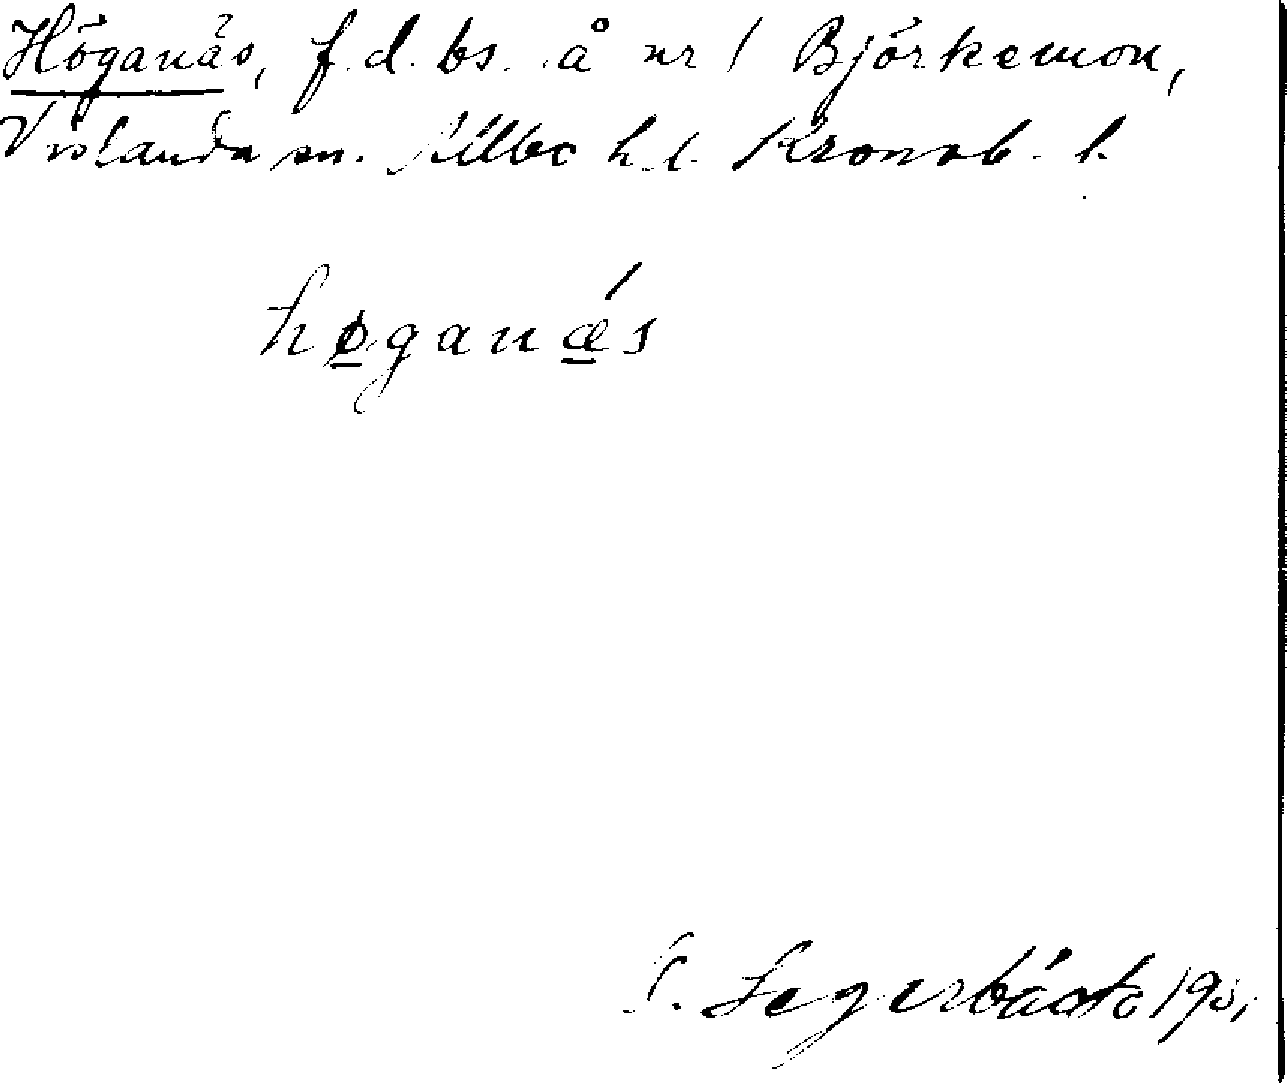 Höganäs, f.d. bs. å nr 1 Björkemon,
Vislanda sn. Allbo hd. Kronob. l.
høganǽs
Segerbäck